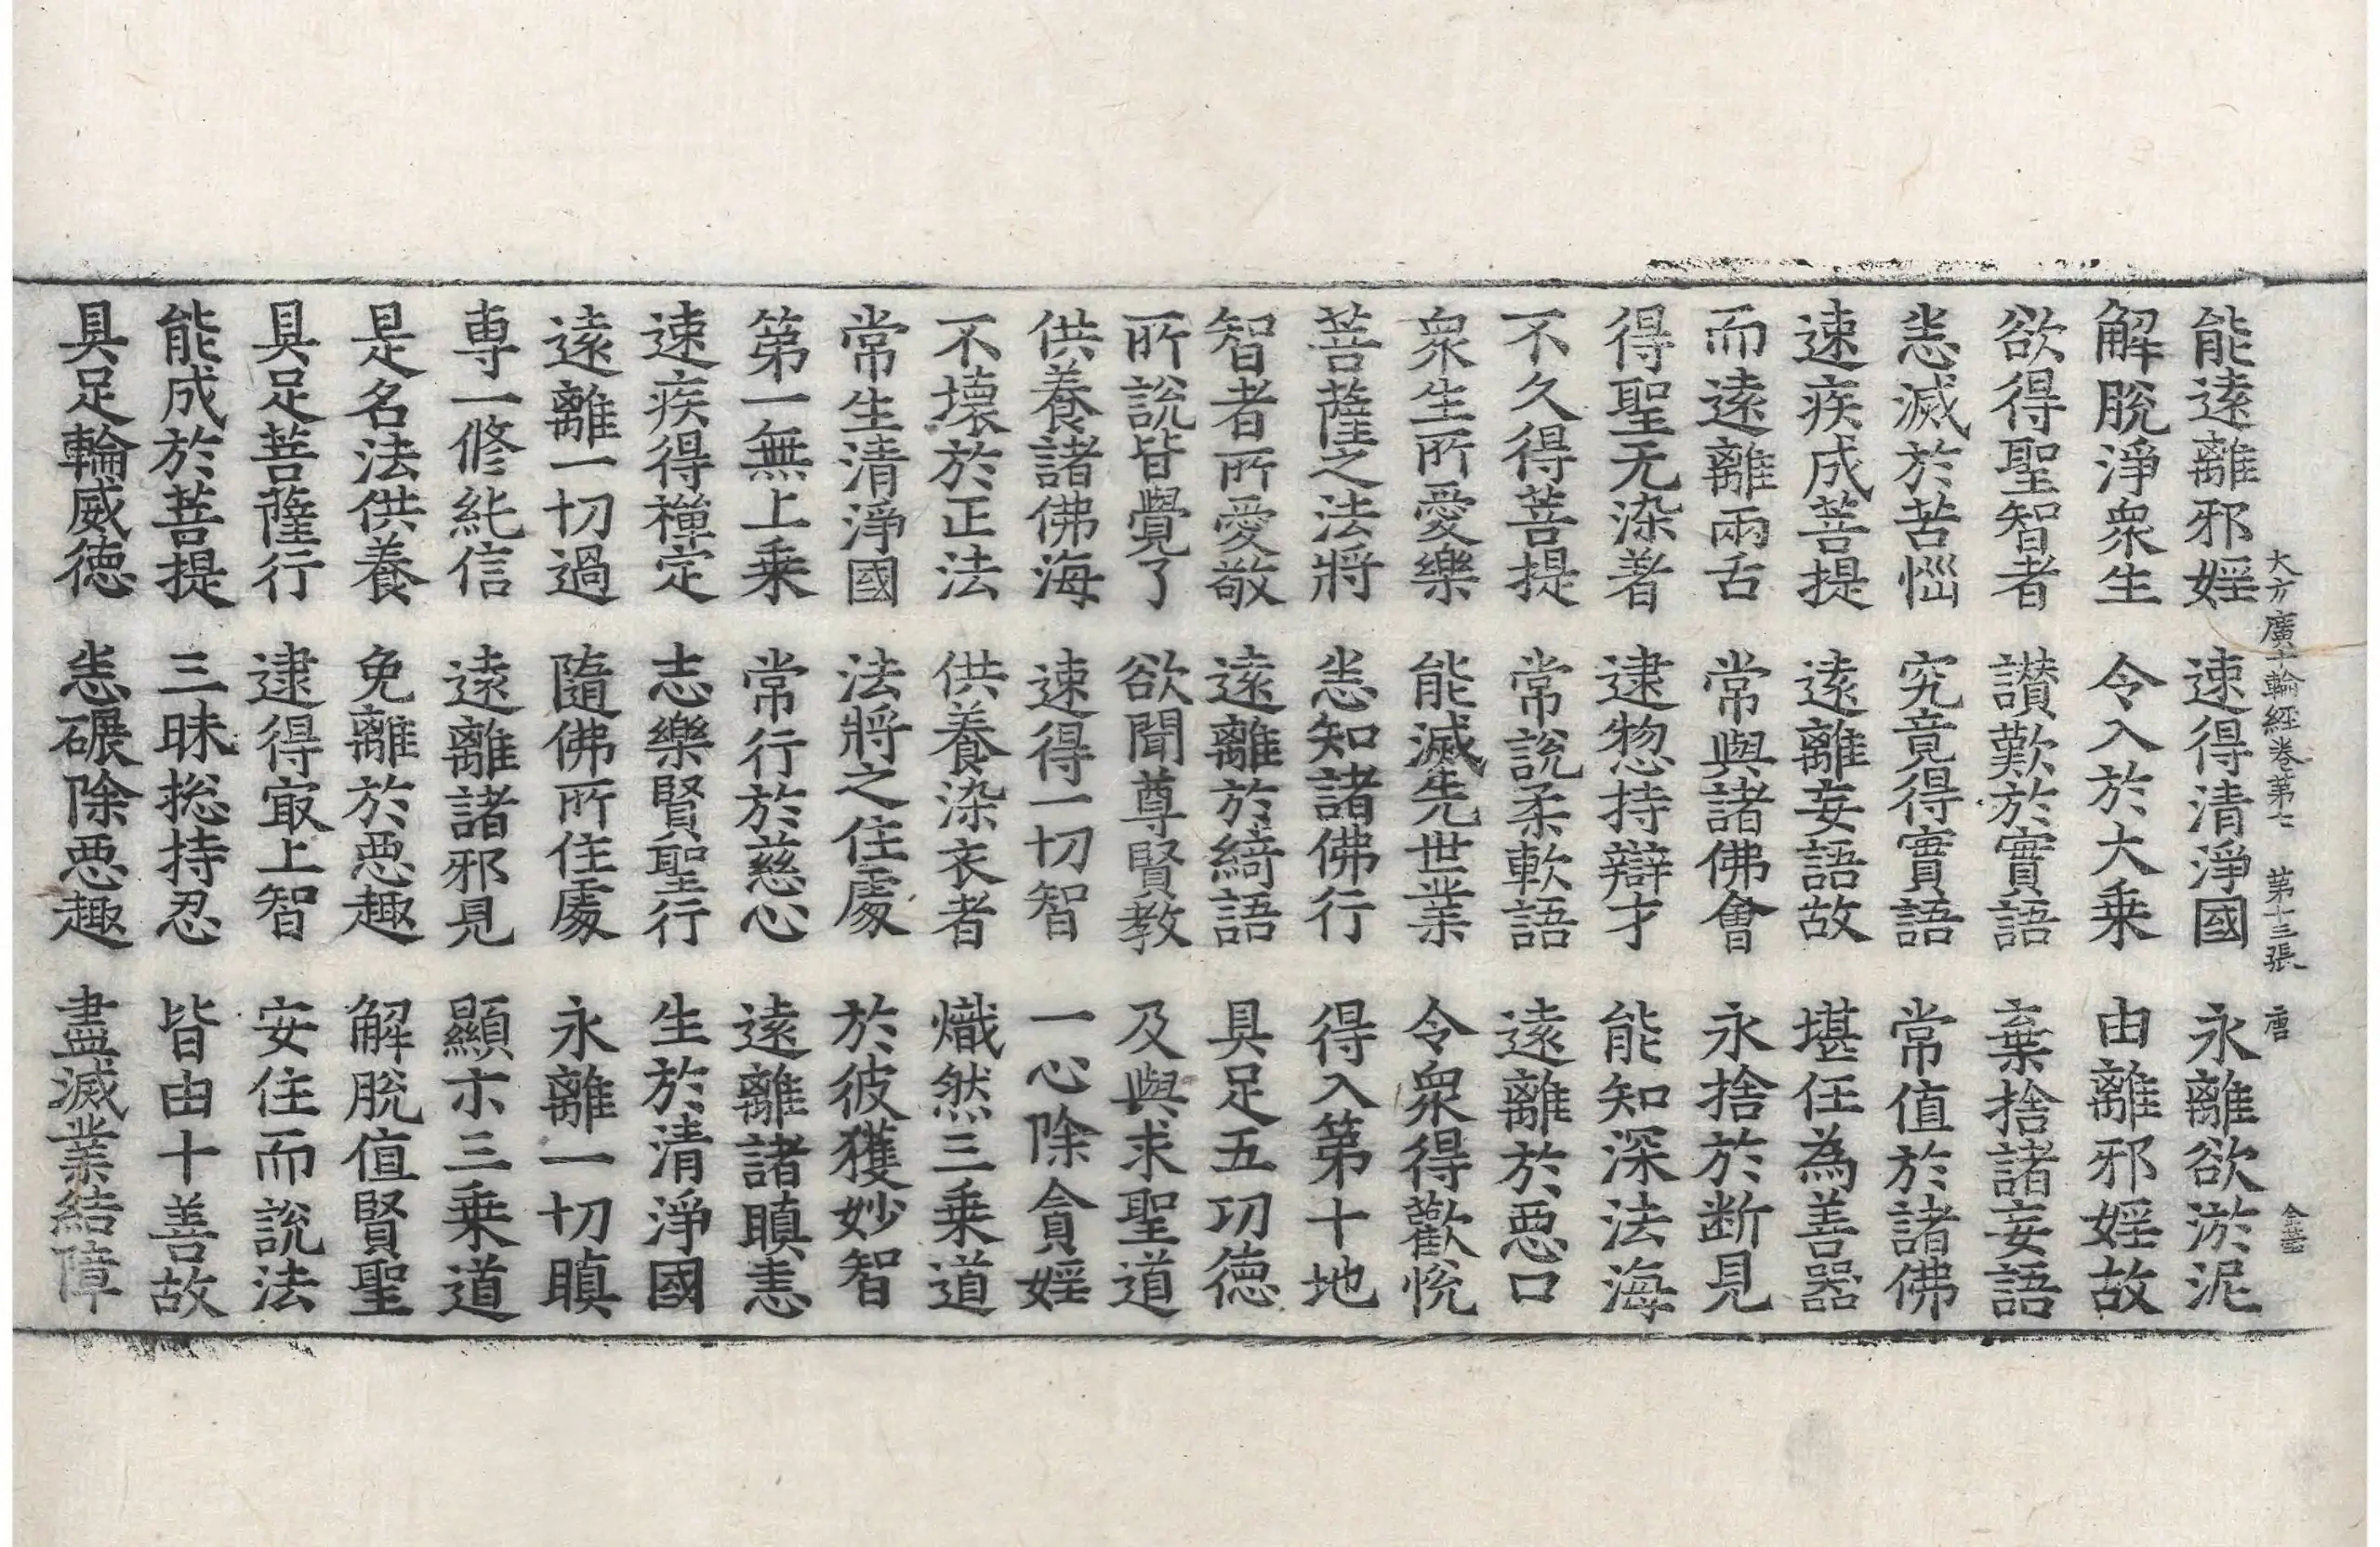 大方廣十輪經卷第七 第十三張 唐
能遠離邪婬 速得清淨國 永離欲淤泥
解脫淨衆生 令入於大乗 由離邪婬故
欲得聖智者 讃歎於實語 棄捨諸妄語
恙滅於苦惱 究竟得實語 常值於諸佛
速疾成菩提 遠離妄語故 堪任為善器
而遠離兩舌 常與諸佛會 永捨於断見
得聖无染著 逮惣持辯才 能知深法海
不久得菩提 常說柔軟語 遠離於惡口
衆生所愛樂 能滅先世業 令衆得歡悅
菩薩之法將 悉知諸佛行 得入第十地
智者所愛敬 遠離於綺語 具足五功德
所說皆覺了 欲聞尊賢教 及與求聖道
供養諸佛海 速得一切智 一心除貪婬
不壞於正法 供養染衣者 熾然三乗道
常生清淨國 法將之住處 於彼獲妙智
第一無上乗 常行於慈心 遠離諸瞋恚
速疾得禪定 志樂賢聖行 生於清淨國
遠離一切過 隨佛所住處 永離一切瞋
專一修純信 遠離諸邪見 顯示三乗道
是名法供養 免離於惡趣 解脫值賢聖
具足菩薩行 逮得寂上智 安住而說法
能成於菩提 三昧捴持忍 皆由十善故
具足輪威德 悉碾除惡趣 盡滅業結障